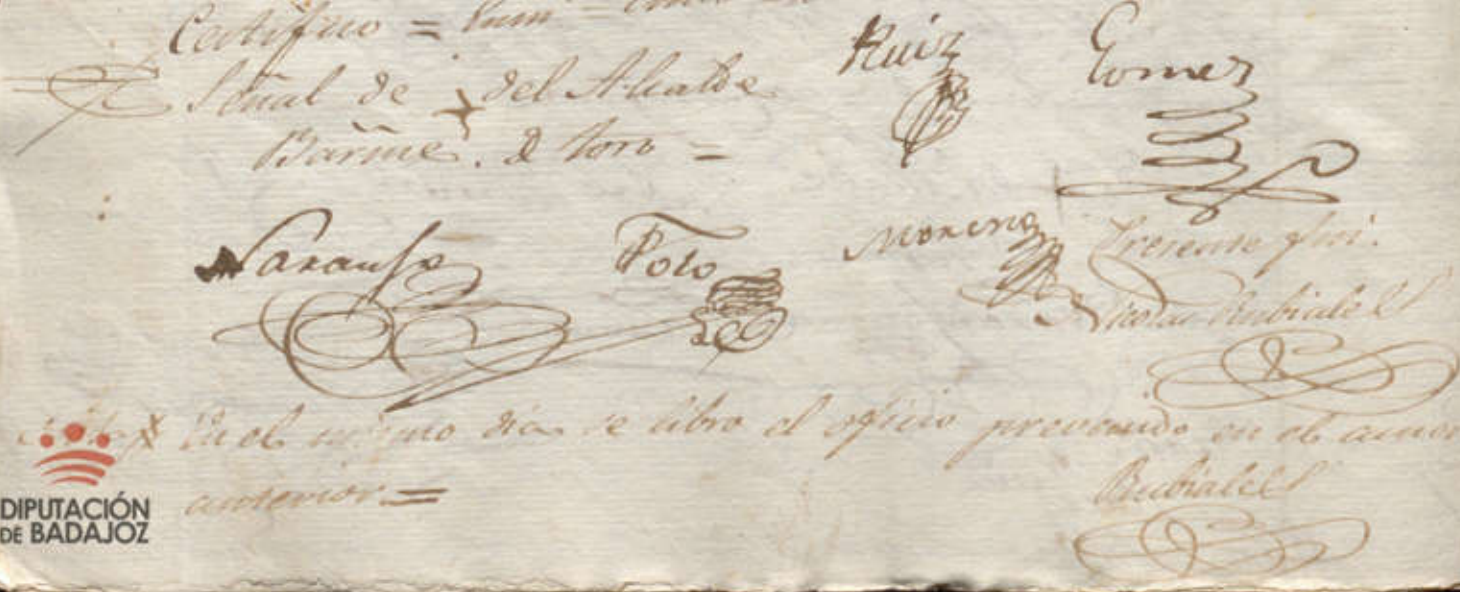 Certifico =
Señal de + del Alcalde
Barme. de Toro =
Ruiz
Gomez
Naranjo
Polo
Moreno
Presente fui.
Nicolas Rubiales
Nota En el mismo dia se libro el oficio prevenido en el
anterior =
Rubiales
DIPUTACIÓN
DE BADAJOZ